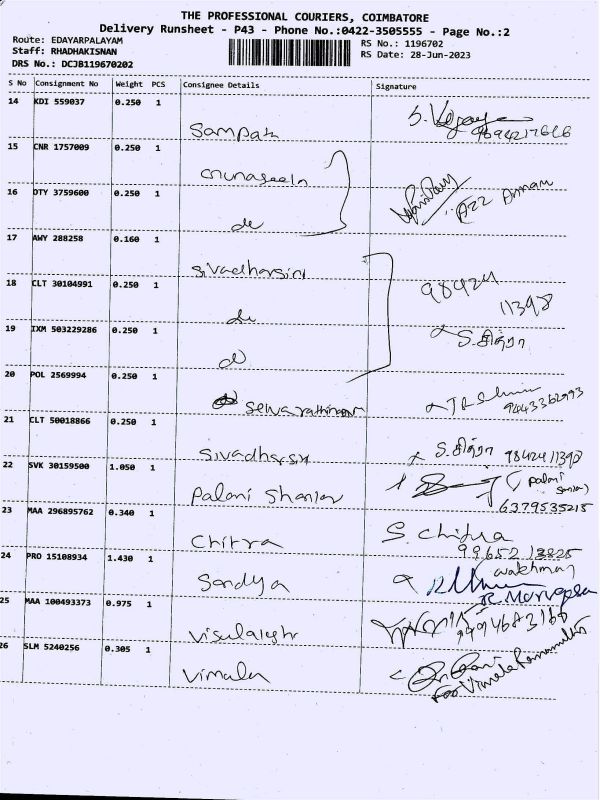 THE PROFESSIONAL COURIERS, COIMBATORE
Delivery Runsheet - P43 - Phone No.:0422-3505555 - Page No.:2
Route: EDAYARPALAYAM
Staff: RHADHAKISNAN
DRS No.: DCJB119670202
RS No.: 1196702
RS Date: 28-Jun-2023
S No Consignment No Weight PCS Consignee Details Signature
14 KDI 559037 0.250 1
Sampath
15 CNR 1757009 0.250 1
16 DTY 3759600 0.250 1
do
17 AWY 288258 0.160 1
Sivadharsini
98424
11398
18 CLT 30104991 0.250 1
do
19 IXM 503229286 0.250 1
do
S. சித்ரா
20 POL 2569994 0.250 1
Selvarathinam
9443362993
21 CLT 50018866 0.250 1
Sivadharsini S. சித்ரா 98424 11398
22 SVK 30159500 1.050 1
Palani Shankar
6379535215
23 MAA 296895762 0.340 1
Chitra S. Chitra
24 PRO 15108934 1.430 1
Sandya
25 MAA 100493373 0.975 1
Visalakshi
26 SLM 5240256 0.305 1
Vimala
For Vimala Ramamurthy